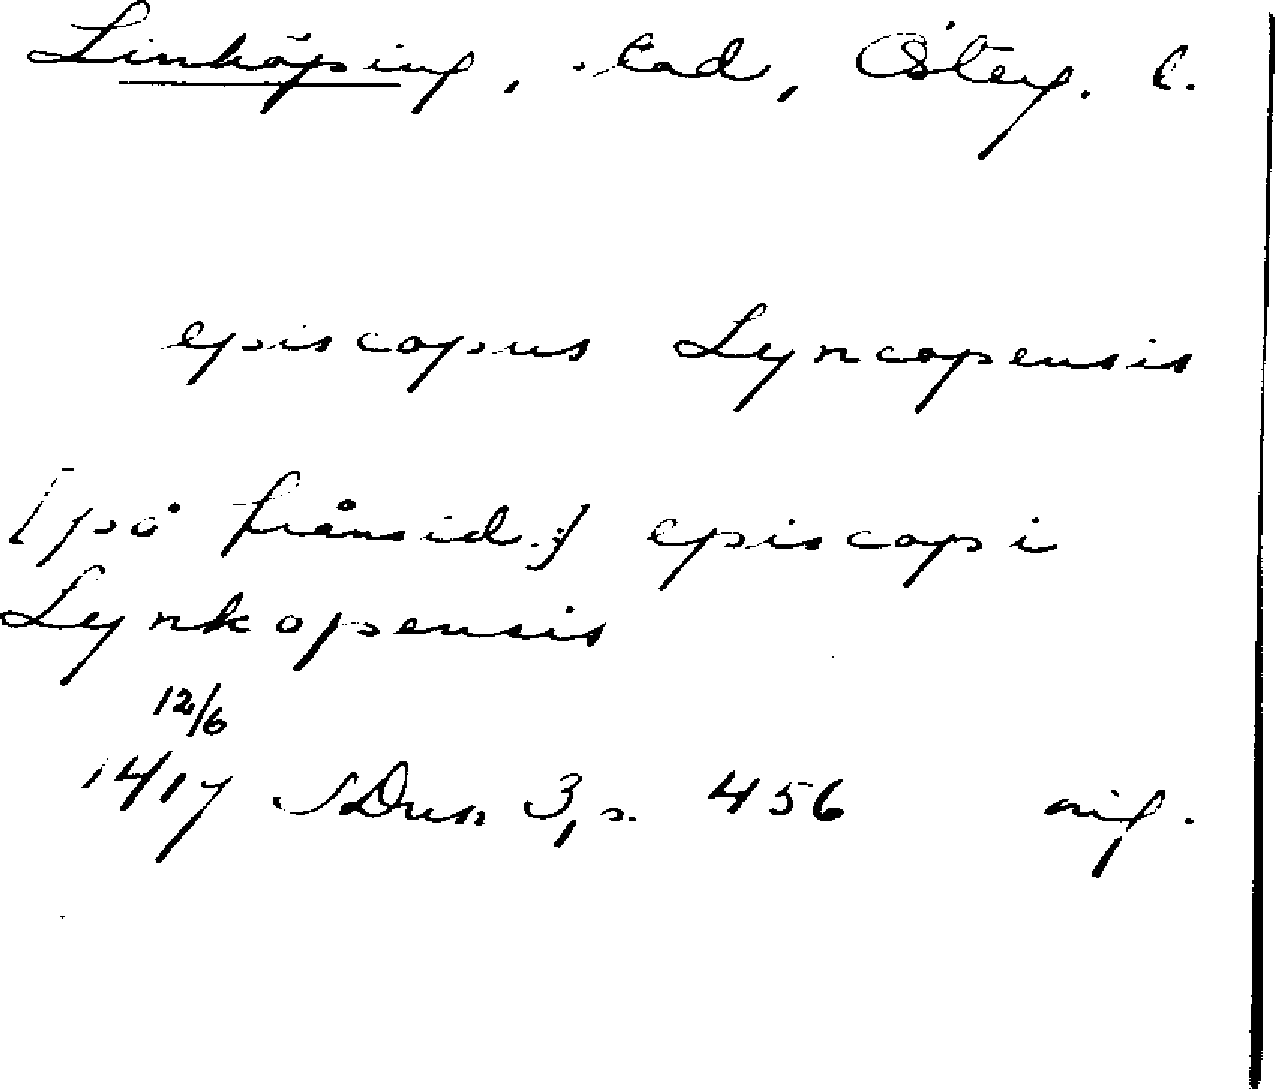 Linköping, stad, Österg. l.
episcopus Lyncopensis
[på frånsid.:] episcopi
Lynkopensis
12/6
1417 SDns 3, s. 456 orig.